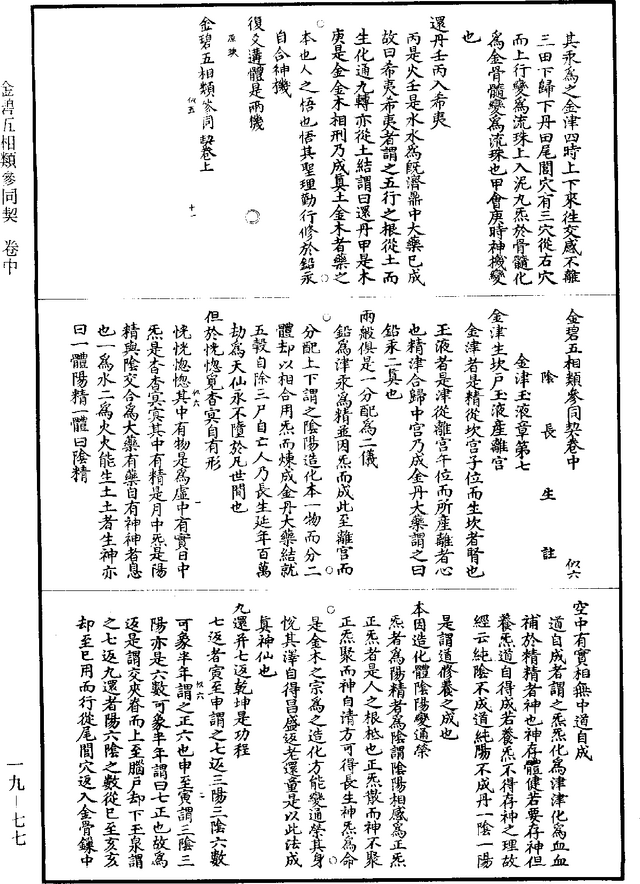 其汞爲之金津四時上下來往交感不離
三田下歸下丹田尾閭穴有三穴從右穴
而上行變爲流珠上入泥九炁於骨髓化
爲金骨髓變爲流珠也甲會庚時神機變
也
還丹壬丙入希夷
丙是火壬是水水爲旣濟鼎中大藥已成
故曰希夷希夷者謂之五行之根從土而
生化通九轉亦從土結謂曰還丹甲是木
庚是金金木相刑乃成眞土金木者藥之
本也人之悟也悟其聖理勤行修於鉛汞
自合神機
復爻遘體是兩機
金碧五相類參同契卷上
金碧五相類參同契 卷中
金碧五相類參同契卷中
陰長生註
金津玉液章第七
金津生坎戶玉液產離宮
金津者是精從坎宮子位而生坎者腎也
玉液者是津從離宮午位而所產離者心
也精津合歸中宮乃成金丹大藥謂之曰
鉛汞二眞也
兩般俱是一分配爲二儀
鉛爲津汞爲精並因炁而成此至離宮而
分配上下謂之陰陽造化本一物而分二
體却以相合用炁而煉成金丹大藥結就
五穀自除三尸自亡人乃長生延年百萬
劫爲天仙永不墮於凡世間也
但於恍惚覓杳冥自有形
恍恍惚惚其中有物是爲虛中有實日中
炁是杳杳冥冥其中有精是月中炁是陽
精與陰交合爲大藥有藥自有神神者息
也一爲水二爲火火能生土土者生神亦
曰一體陽精一體曰陰精
空中有實相無中道自成
道自成者謂之炁炁化爲津津化爲血血
補於精精者神也神存體健若要存神但
養炁道自得成若養炁不得存神之理故
經云純陰不成道純陽不成丹一陰一陽
是謂道修養之成也
本因造化體陰陽變通榮
炁者爲陽精者爲陰謂陰陽相感爲正炁
正炁者是人之根柢也正炁散而神不聚
正炁聚而神自清方可得長生神炁爲命
是金木之宗爲之造化方能變通榮其身
悅其澤自得昌盛返老還童是以此法成
眞神仙也
九還幷七返乾坤是功程
七返者寅至申謂之七返三陽三陰六數
可象半年謂之正六也申至寅謂三陰三
陽亦是六數可象半年謂曰七正也故爲
返是謂交夾脊而上至腦戶却下玉泉謂
之七返九還者陽六陰之數從巳至亥亥
却至巳用而行從尾閭穴返入金骨鏁中
一九—七七